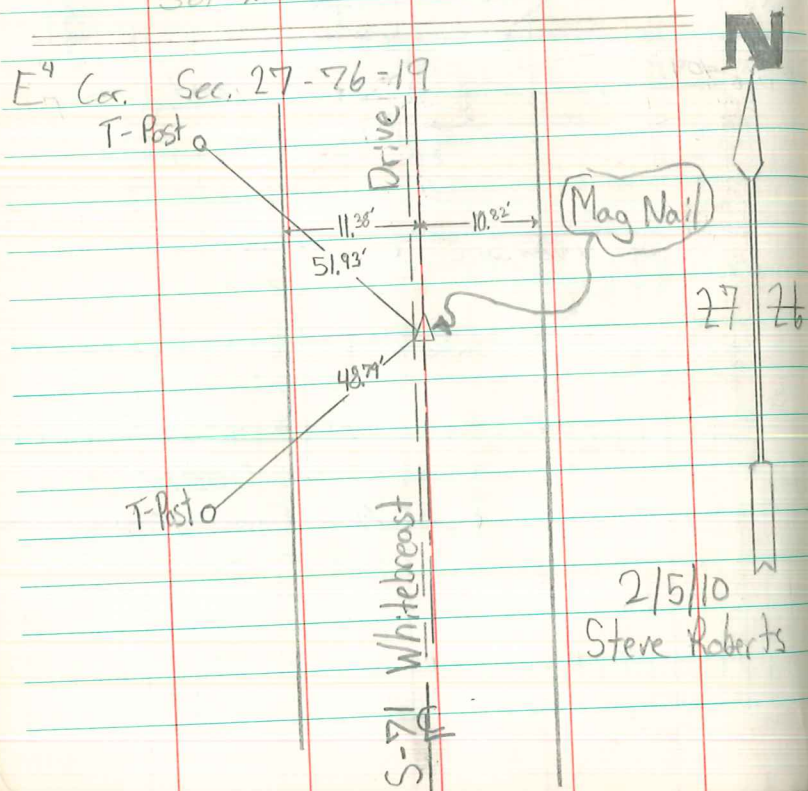 N
E⁴ Cor. Sec. 27-76-19
T-Post
Drive
11.38'
10.82'
Mag Nail
51.93'
27 26
48.79'
T-Post
S-71 Whitebreast
℄
2/5/10
Steve Roberts